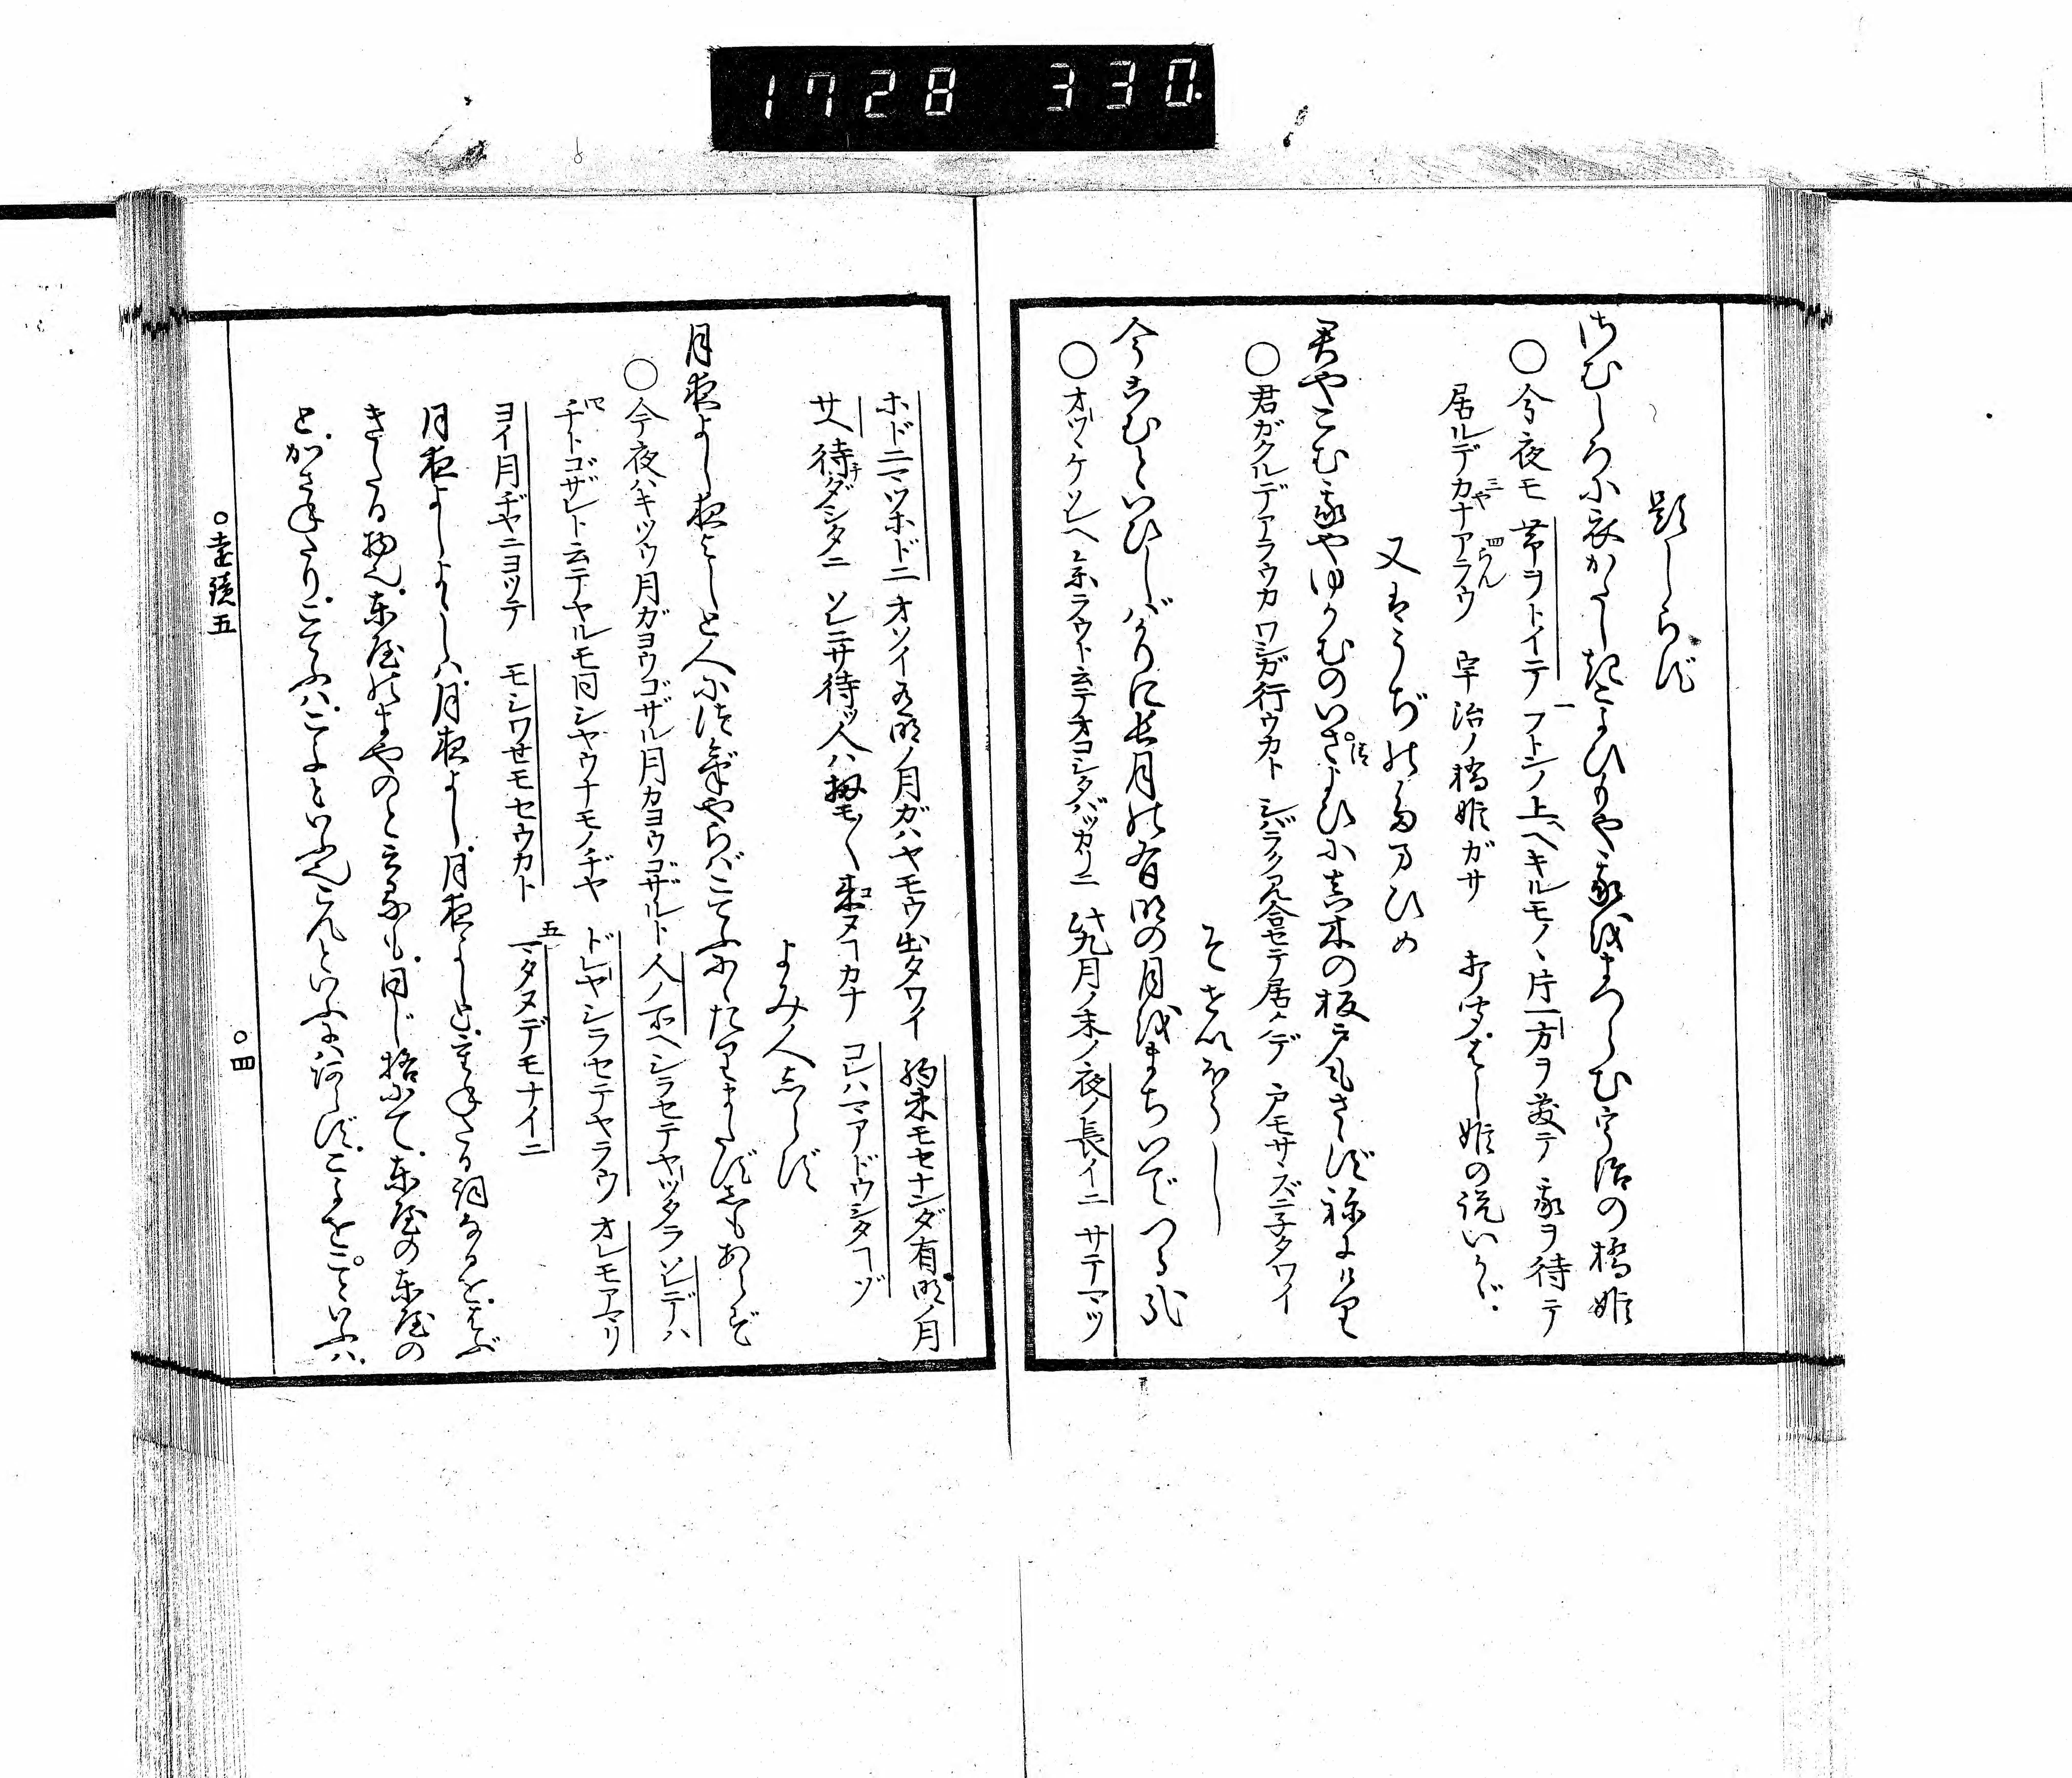 1728 330
題しらず
さむしろに衣かたしきこよひもや我をまつらむ宇治の橋姫
○今夜モ 帯ヲトイテ フトンノ上ヘキルモノヽ片一方ヲ敷テ 我ヲ待テ
居ルデカナアラウ 宇治ノ橋姫ガサ
三や 四らん
又はうぢのたまひめ
君やこむ我やゆかむのいさよひに真木の板戸もさゝずねにけり
○君ガクルデアラウカ ワシガ行ウカト シバラク見合セテ居ルデ 戸モサヽズニ子タワイ
そせいほうし
今こむといひしばかりに長月の有明の月をまちいでつる哉
○オツヽケソレヘ参ラウト云テオコシタバツカリニ 此九月ノ末ノ夜ノ長イニ サテマツ
ホドニマツホドニ オソイ有明ノ月ガハヤモウ出タワイ 約束モセナンダ有明ノ月
サヘ待ダシタニ ソレニサ待ツ人ハ扨モ〳〵来ヌヿカナ コレハマアドウシタヿゾ
よみ人しらず
月夜よし夜よしと人につげやらばこてふににたりまたずしもあらず
○今夜ハキツウ月ガヨウゴザル月カヨウゴザルト 人ノ所ヘシラセテヤツタラ ソレデハ
チトゴザレト云テヤルモ同シヤウナモノヂヤ ドレヤシラセテヤラウ オレモアマリ
ヨイ月ヂヤニヨツテ モシワせモセウカト マタヌデモナイニ
五
月夜よしよよしハ月夜よし月夜よしと重ねたる詞なるをはぶ
きたる物也東屋のまやのと云るも同じ格にて東屋の東屋の
とかさねたりこてふハこよといふ也こんといふにハあらずこよをことといふハ
○壱續五
○四